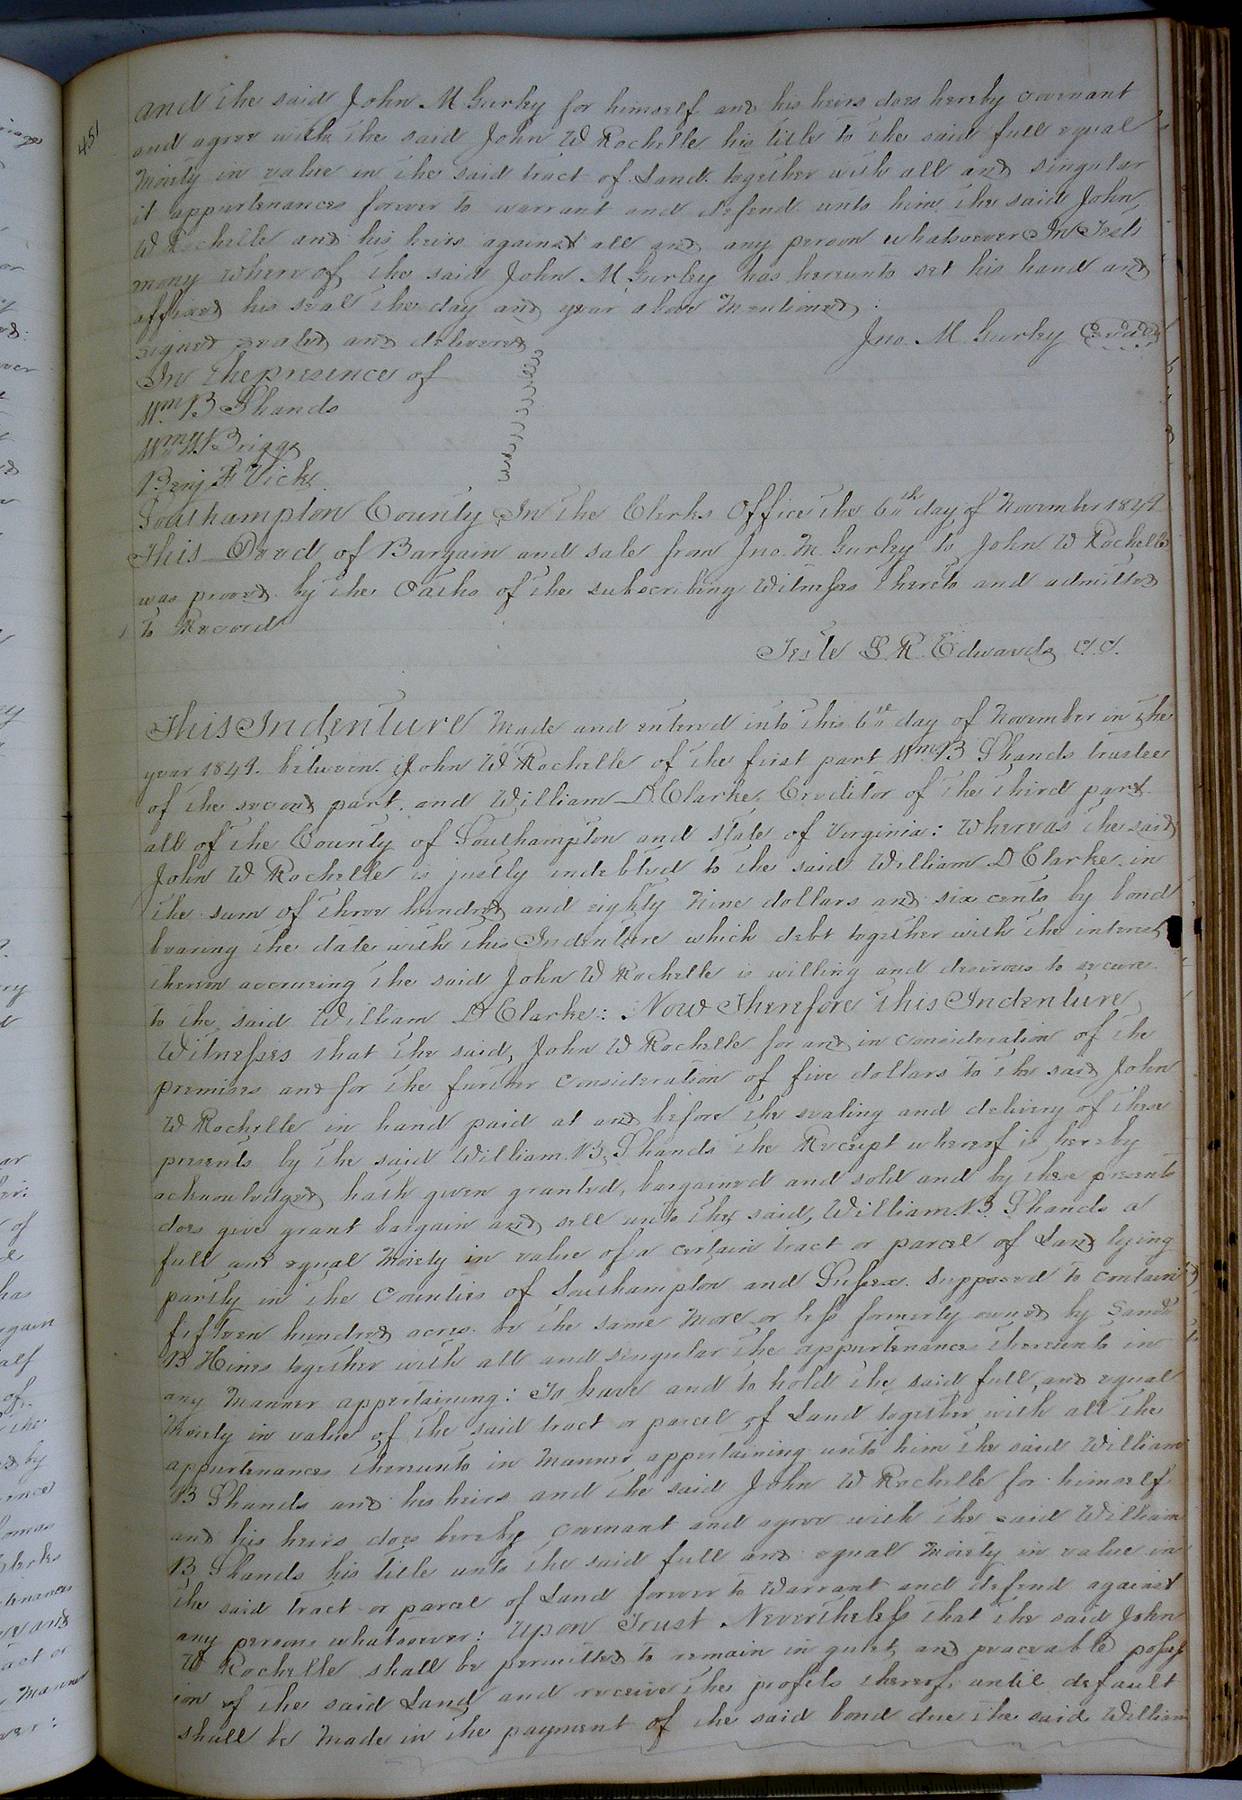 451
and the said John M Gurley for himself and his heirs does hereby covenant
and agree with the said John W Rochelle his title to the said full equal
Moiety in value in the said tract of Land together with all and singular
it appurtenances forever to warrant and defend unto him the said John
W Rochelle and his heirs against all and any person whatsoever In Testi
mony where of the said John M Gurley has hereunto set his hand and
affixed his seal the day and year above Mentioned.
signed sealed and delivered
Jno. M Gurley Seal
In the presence of
Wm B Shands
Wm W Briggs
Benj F Vick
Southampton County In the Clerks Office the 6th day of November 1849
This Deed of Bargain and sale from Jno. M Gurley to John W Rochelle
was proved by the Oaths of the subscribing Witnesses thereto and admitted
to Record
Teste L R Edwards C.C.
This Indenture Made and entered into this 6th day of November in the
year 1849. between John W Rochelle of the first part Wm B Shands trustee
of the second part. and William D Clarke Creditor of the third part.
all of the County of Southampton and State of Virginia: Whereas the said
John W Rochelle is justly indebted to the said William D Clarke in
the sum of three hundred and eighty Nine dollars and six cents by bond
bearing the date with this Indenture which debt together with the interest
thereon accruing the said John W Rochelle is willing and desirous to secure
to the said William D Clarke: Now Therefore This Indenture
Witnesses that the said, John W Rochelle for and in consideration of the
premises and for the further consideration of five dollars to the said John
W Rochelle in hand paid at and before the sealing and delivery of these
presents by the said William B. Shands the Receipt whereof is hereby
acknowledged hath given granted, bargained and sold and by these presents
does give grant bargain and sell unto the said, William B. Shands a
full and equal Moiety in value of a certain tract or parcel of Land lying
partly in the Counties of Southampton and Sussex. Supposed to contain
fifteen hundred acres be the same More or less formerly owned by
B Hines together with all and singular the appurtenances thereunto in
any Manner appertaining: To have and to hold the said full and equal
Moiety in value of the said tract or parcel of Land together with all the
appurtenances thereunto in Manner appertaining unto him the said William
B Shands and his heirs and the said John W Rochelle for himself
and his heirs does hereby covenant and agree with the said William
B Shands his title unto the said full and equal Moiety in value in
the said tract or parcel of Land forever to Warrant and defend against
any persons whatsoever: Upon Trust Nevertheless that the said John
W Rochelle shall be permitted to remain in quiet and peaceable possess
ion of the said Land and receive the profits thereof until default
shall be Made in the payment of the said bond due the said William